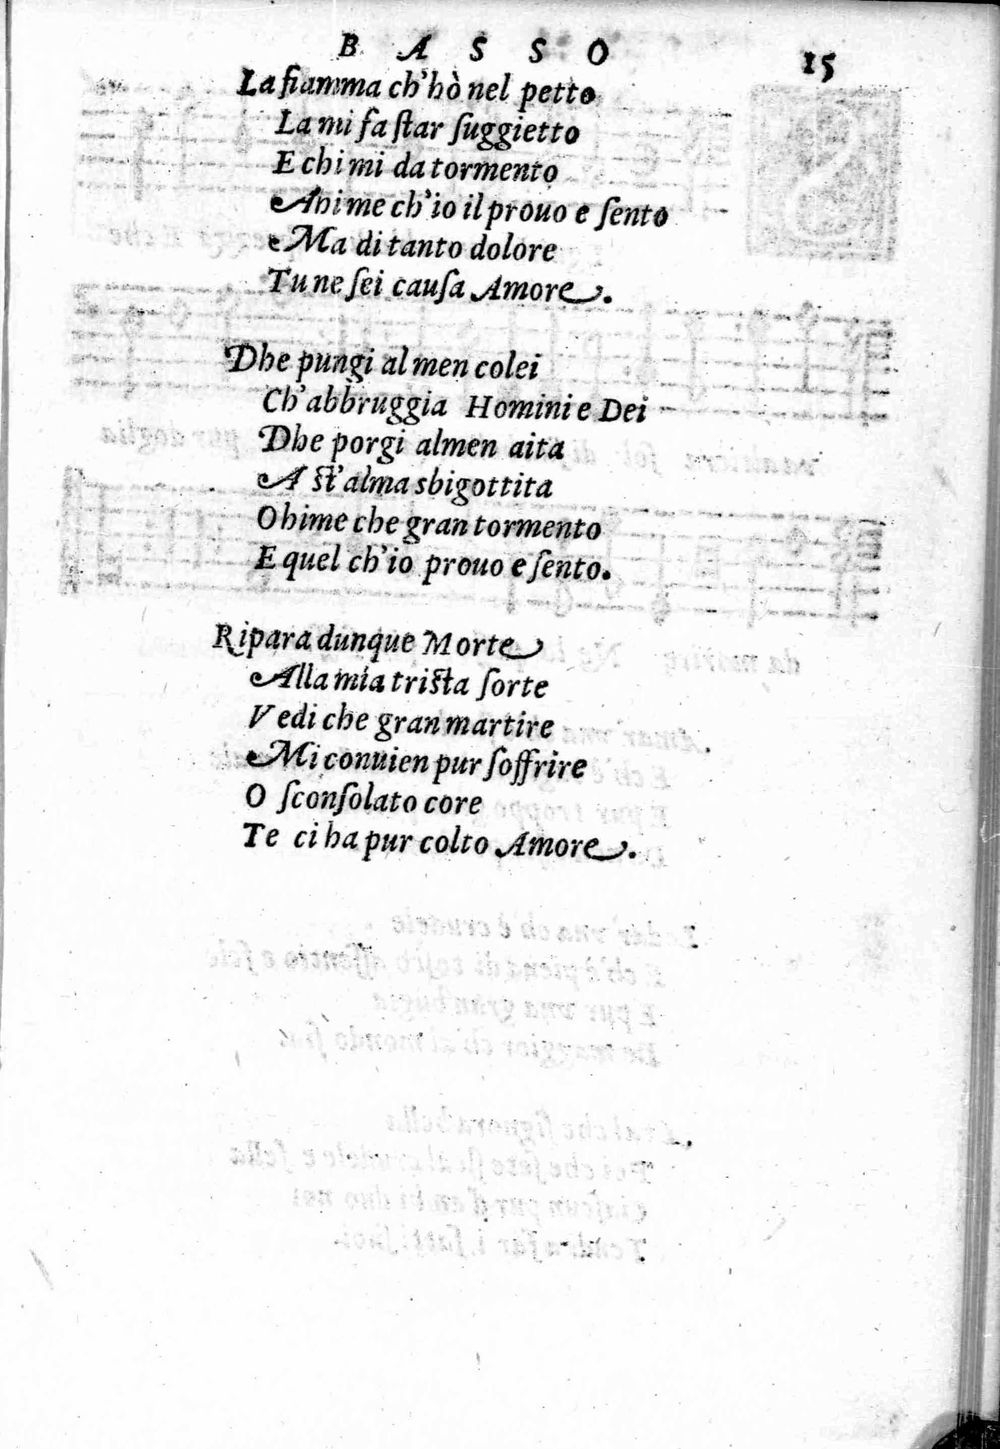 BASSO 15
La fiamma ch'hò nel petto
La mi fa ſtar ſuggietto
E chi mi da tormento
Ahime ch'io il prouo e ſento
Ma di tanto dolore
Tu ne ſei cauſa Amore.
Dhe pungi al men colei
Ch'abbruggia Homini e Dei
Dhe porgi almen aita
A ſt'alma sbigottita
Ohime che gran tormento
E quel ch'io prouo e ſento.
Ripara dunque Morte
Alla mia triſta ſorte
Vedi che gran martire
Mi conuien pur ſoffrire
O ſconſolato core
Te ci ha pur colto Amore.